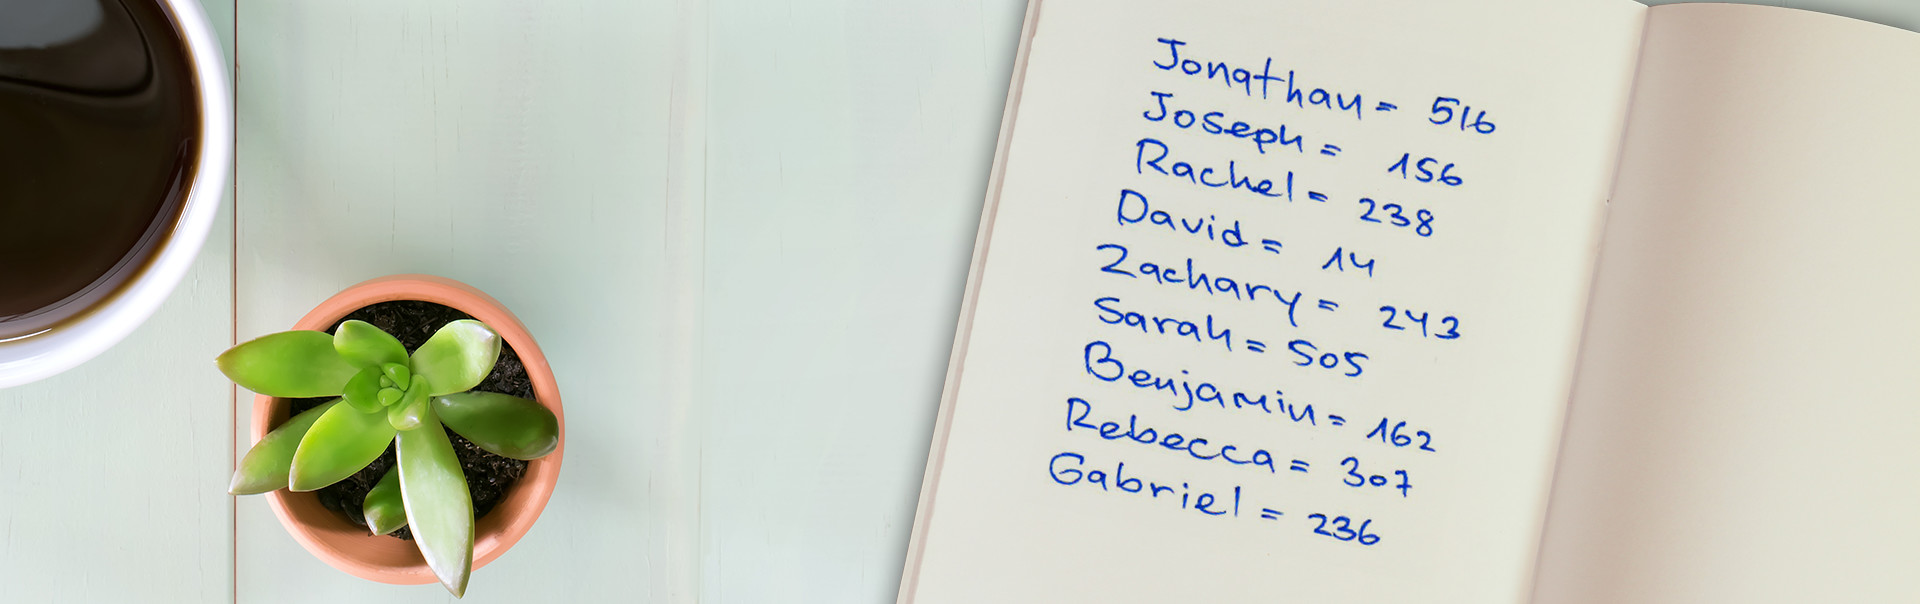 Jonathan = 516
Joseph = 156
Rachel = 238
David = 14
Zachary = 243
Sarah = 505
Benjamin = 162
Rebecca = 307
Gabriel = 236